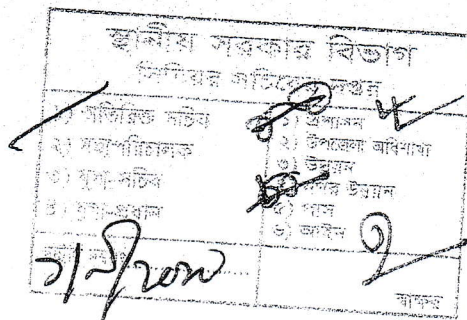 স্থানীয় সরকার বিভাগ
সিনিয়র সচিবের দপ্তর
১) অতিরিক্ত সচিব
২) মহাপরিচালক
৩) যুগ্ম-সচিব
৪) যুগ্ম-প্রধান
১) প্রশাসন
২) উপজেলা অধিশাখা
৩) উন্নয়ন
উন্নয়ন
৫) পাস
৬) আইন
স্বাক্ষর